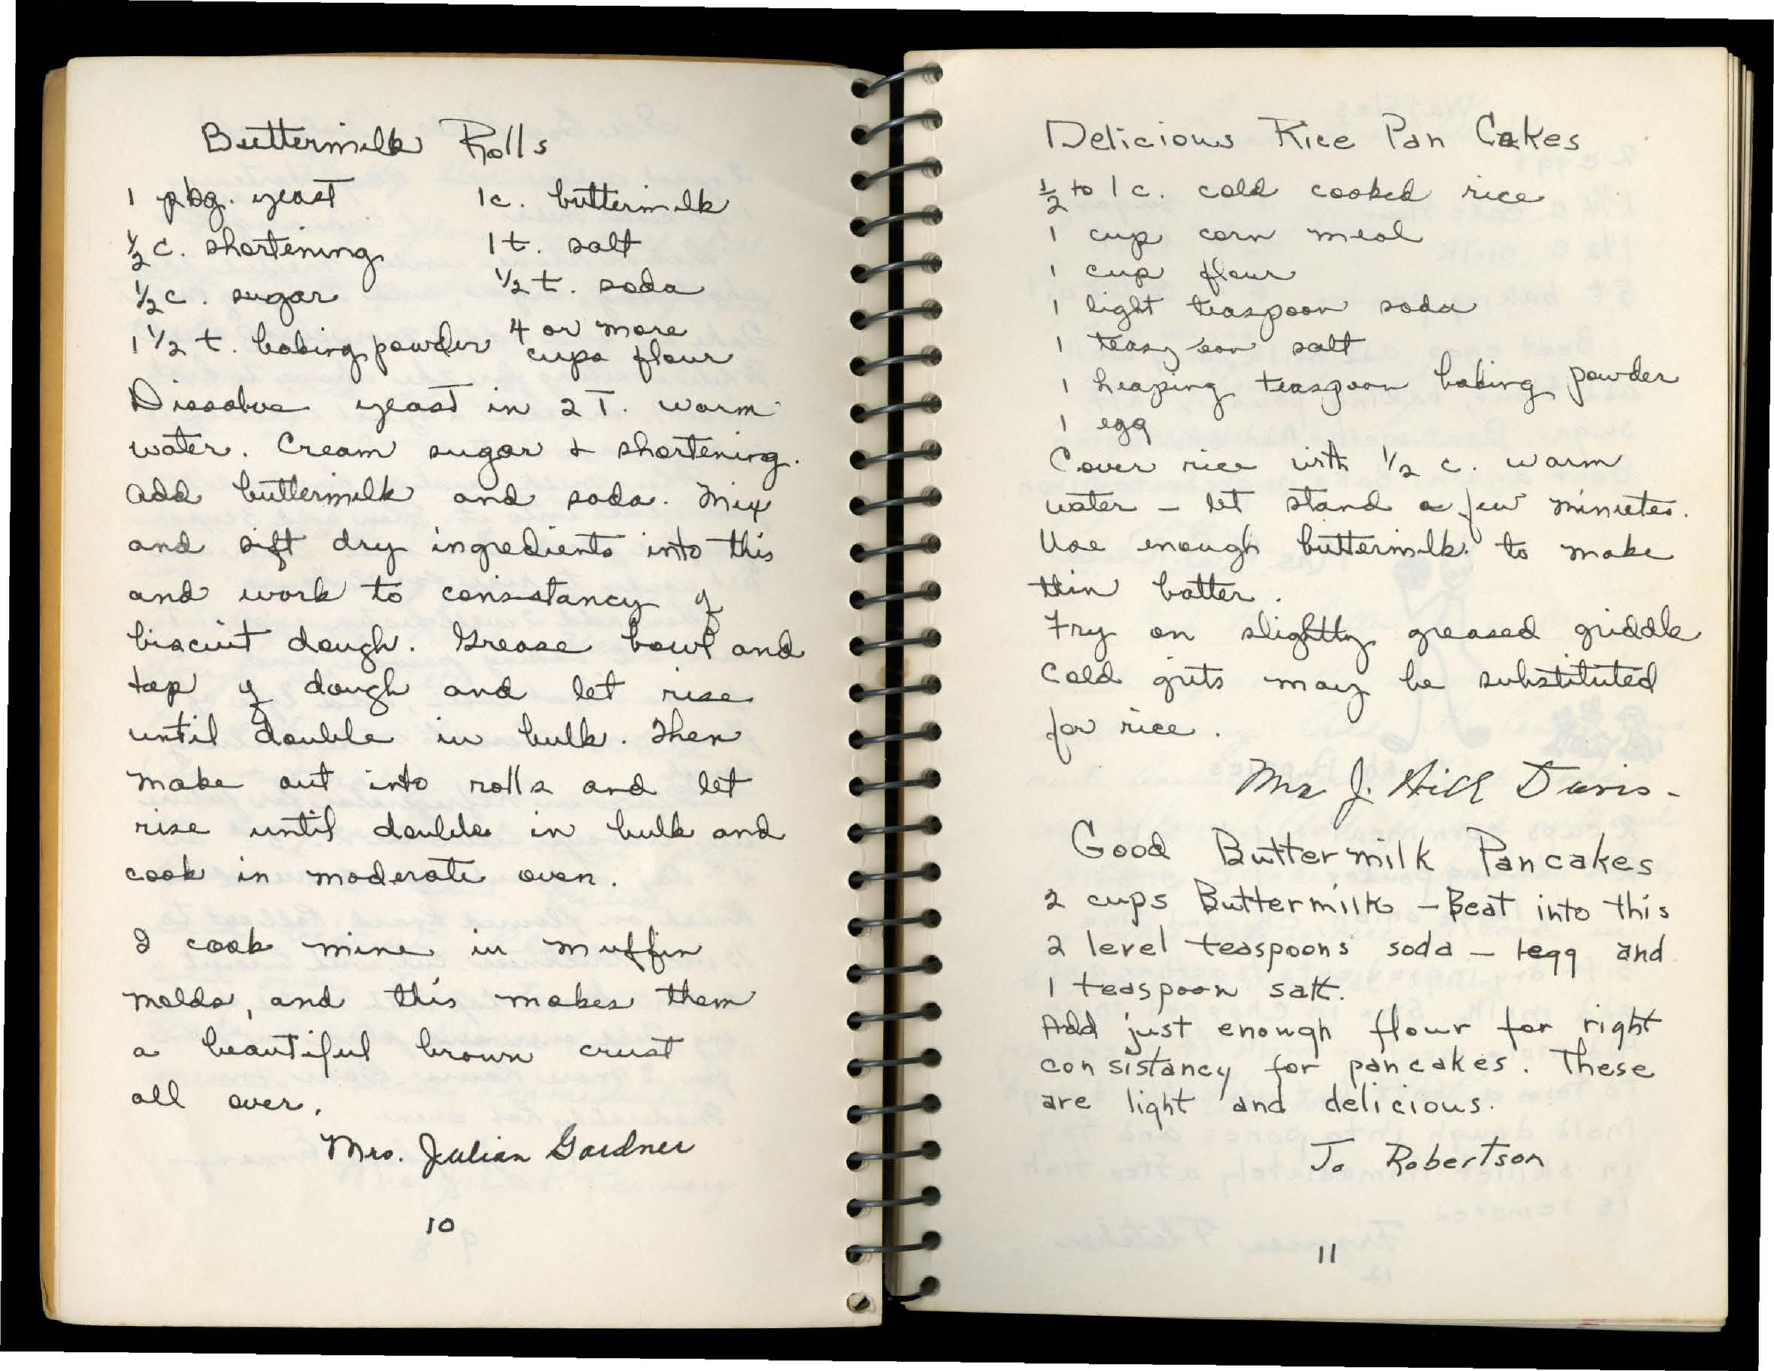 Buttermilk Rolls
1 pkg. yeast 1c. buttermilk
½ c. shortening 1 t. salt
½ c. sugar ½ t. soda
1 ½ t. baking powder 4 or more
cups flour
Dissolve yeast in 2 T. warm
water. Cream sugar + shortening.
Add buttermilk and soda. Mix
and sift dry ingredients into this
and work to consistancy of
biscuit dough. Grease bowl and
top of dough and let rise
until double in bulk. Then
make out into rolls and let
rise until double in bulk and
cook in moderate oven.
I cook mine in muffin
molds, and this makes them
a beautiful brown crust
all over.
Mrs. Julian Gardner
10
Delicious Rice Pan Cakes
½ to 1 c. cold cooked rice
1 cup corn meal
1 cup flour
1 light teaspoon soda
1 teaspoon salt
1 heaping teaspoon baking powder
1 egg
Cover rice with ½ c. warm
water - let stand a few minutes.
Use enough buttermilk to make
thin batter.
Fry on slightly greased griddle
Cold grits may be substituted
for rice.
Mrs J. Hill Davis -
Good Buttermilk Pancakes
2 cups Buttermilk - Beat into this
2 level teaspoons soda - 1 egg and
1 teaspoon salt.
Add just enough flour for right
consistancy for pancakes. These
are light and delicious.
Jo Robertson
11